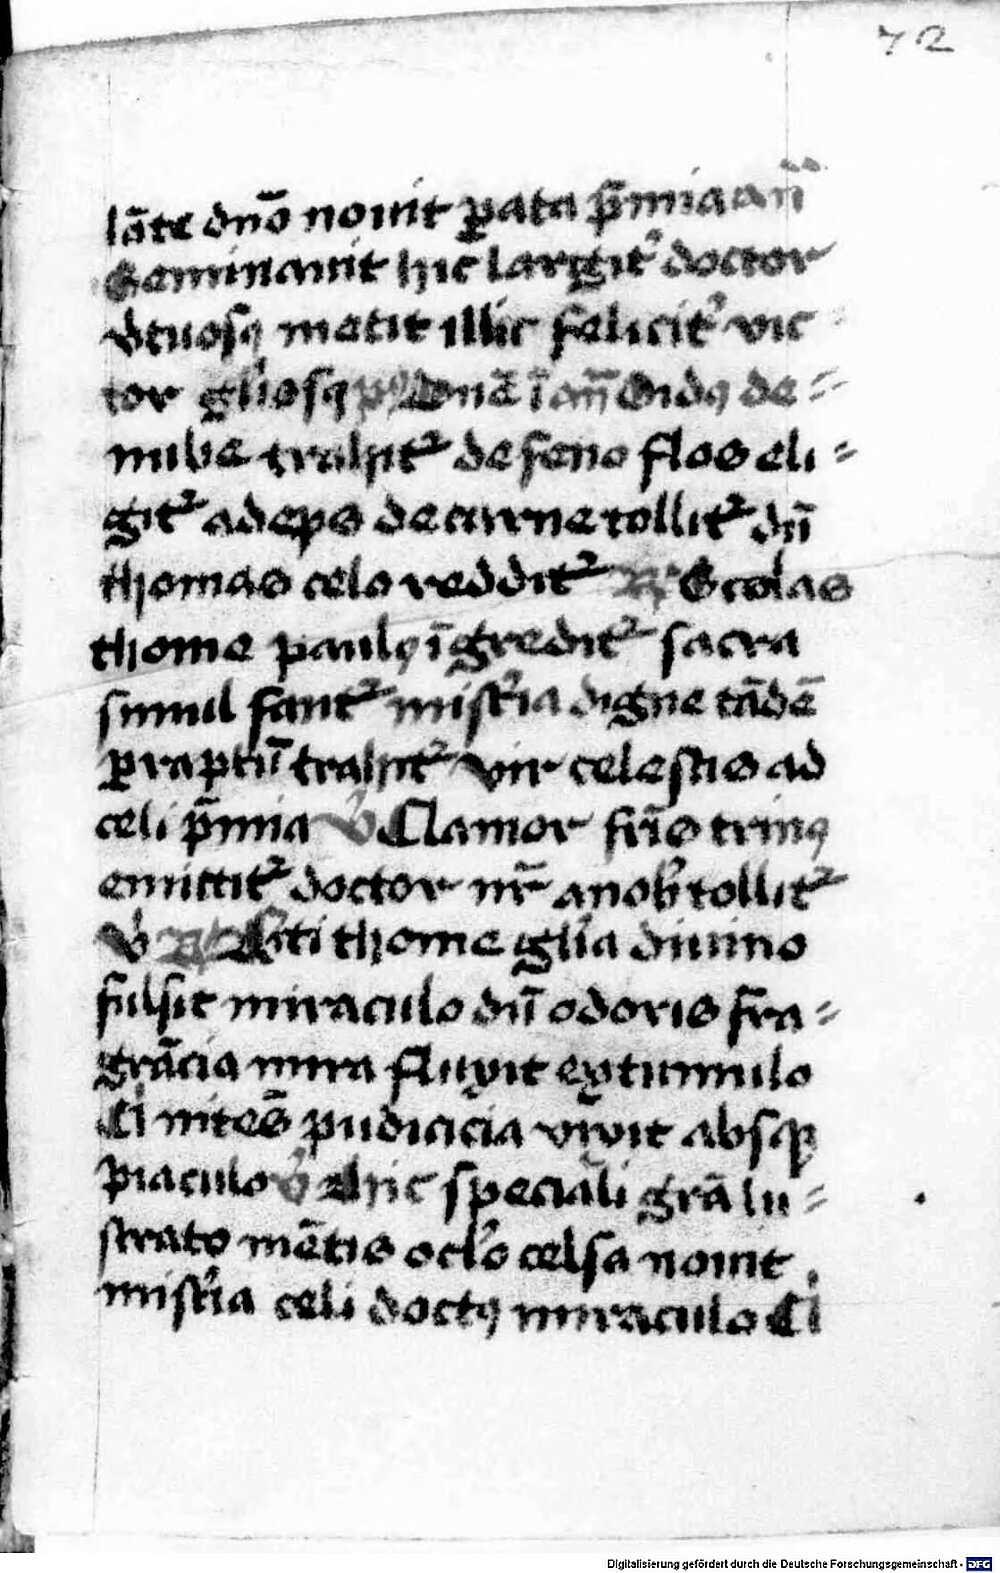 72
lāte dn̄o nouit ꝑata p̄mia an̄
Seminauit hic largitᷣ doctor
v̉tuosꝯ metit illic felicitᷣ vic
tor gl̉iosꝯ ī Sidꝯ de=
nube trahitᷣ de feno flos eli=
gitᷣ adeps de carne tollitᷣ dū
thomas celo redditᷣ ℟ Scolas
thome paulꝯ īgreditᷣ sacra
simul fantᷣ mist̉ia digne tādē
ꝑ raptū trahitᷣ vir celestis ad
celi p̄mia ℣ Clamor fr̄is trinꝯ
emittitᷣ doctor nr̄ a nob̉ tollitᷣ
℣ ℟ Sc̄ti thome gl̉ia diuino
fulsit miraculo dū odoris fra=
grācia mira fluxit ex tumulo
Cl nitēs pudicicia vixit absqꝫ
piaculo ℣ hic speciali gr̄a lu=
strato mētis oclo celsa nouit
mist̉ia celi doctꝯ miraculo Cl
Digitalisierung gefördert durch die Deutsche Forschungsgemeinschaft - DFG